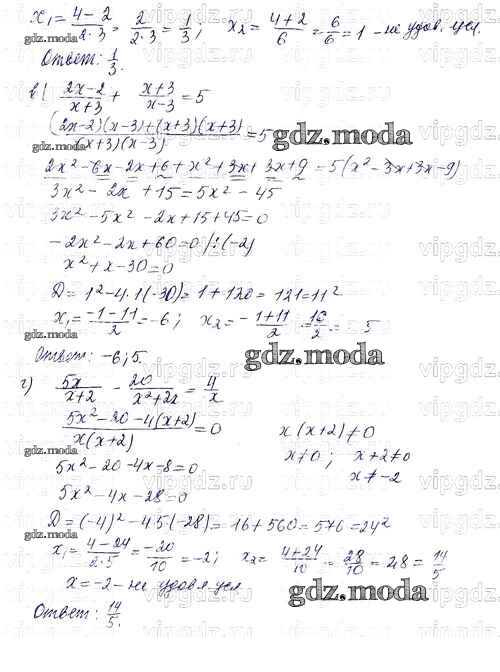 x₁ = (4-2)/(2·3) = 2/(2·3) = 1/3; x₂ = (4+2)/6 = 6/6 = 1 - не удов. усл.
Ответ: 1/3.
gdz.moda
в) (2x-2)/(x+3) + (x+3)/(x-3) = 5
((2x-2)(x-3)+(x+3)(x+3))/((x+3)(x-3)) = 5
gdz.moda
2x²-6x-2x+6+x²+3x+3x+9 = 5(x²-3x+3x-9)
3x²-2x+15 = 5x²-45
3x²-5x²-2x+15+45=0
-2x²-2x+60=0 /:(-2)
x²+x-30=0
D = 1²-4·1(-30) = 1+120 = 121 = 11²
x₁ = (-1-11)/2 = -6; x₂ = -(1+11)/2 = 10/2 = 5
Ответ: -6; 5.
gdz.moda
г) 5x/(x+2) - 20/(x²+2x) = 4/x
(5x²-20-4(x+2))/(x(x+2)) = 0 x(x+2)≠0
5x²-20-4x-8=0 x≠0; x+2≠0
5x²-4x-28=0 x≠-2
D = (-4)²-4·5(-28) = 16+560 = 576 = 24²
x₁ = (4-24)/(2·5) = -20/10 = -2; x₂ = (4+24)/10 = 28/10 = 2,8 = 14/5
x=-2 - не удовл усл
gdz.moda
Ответ: 14/5.